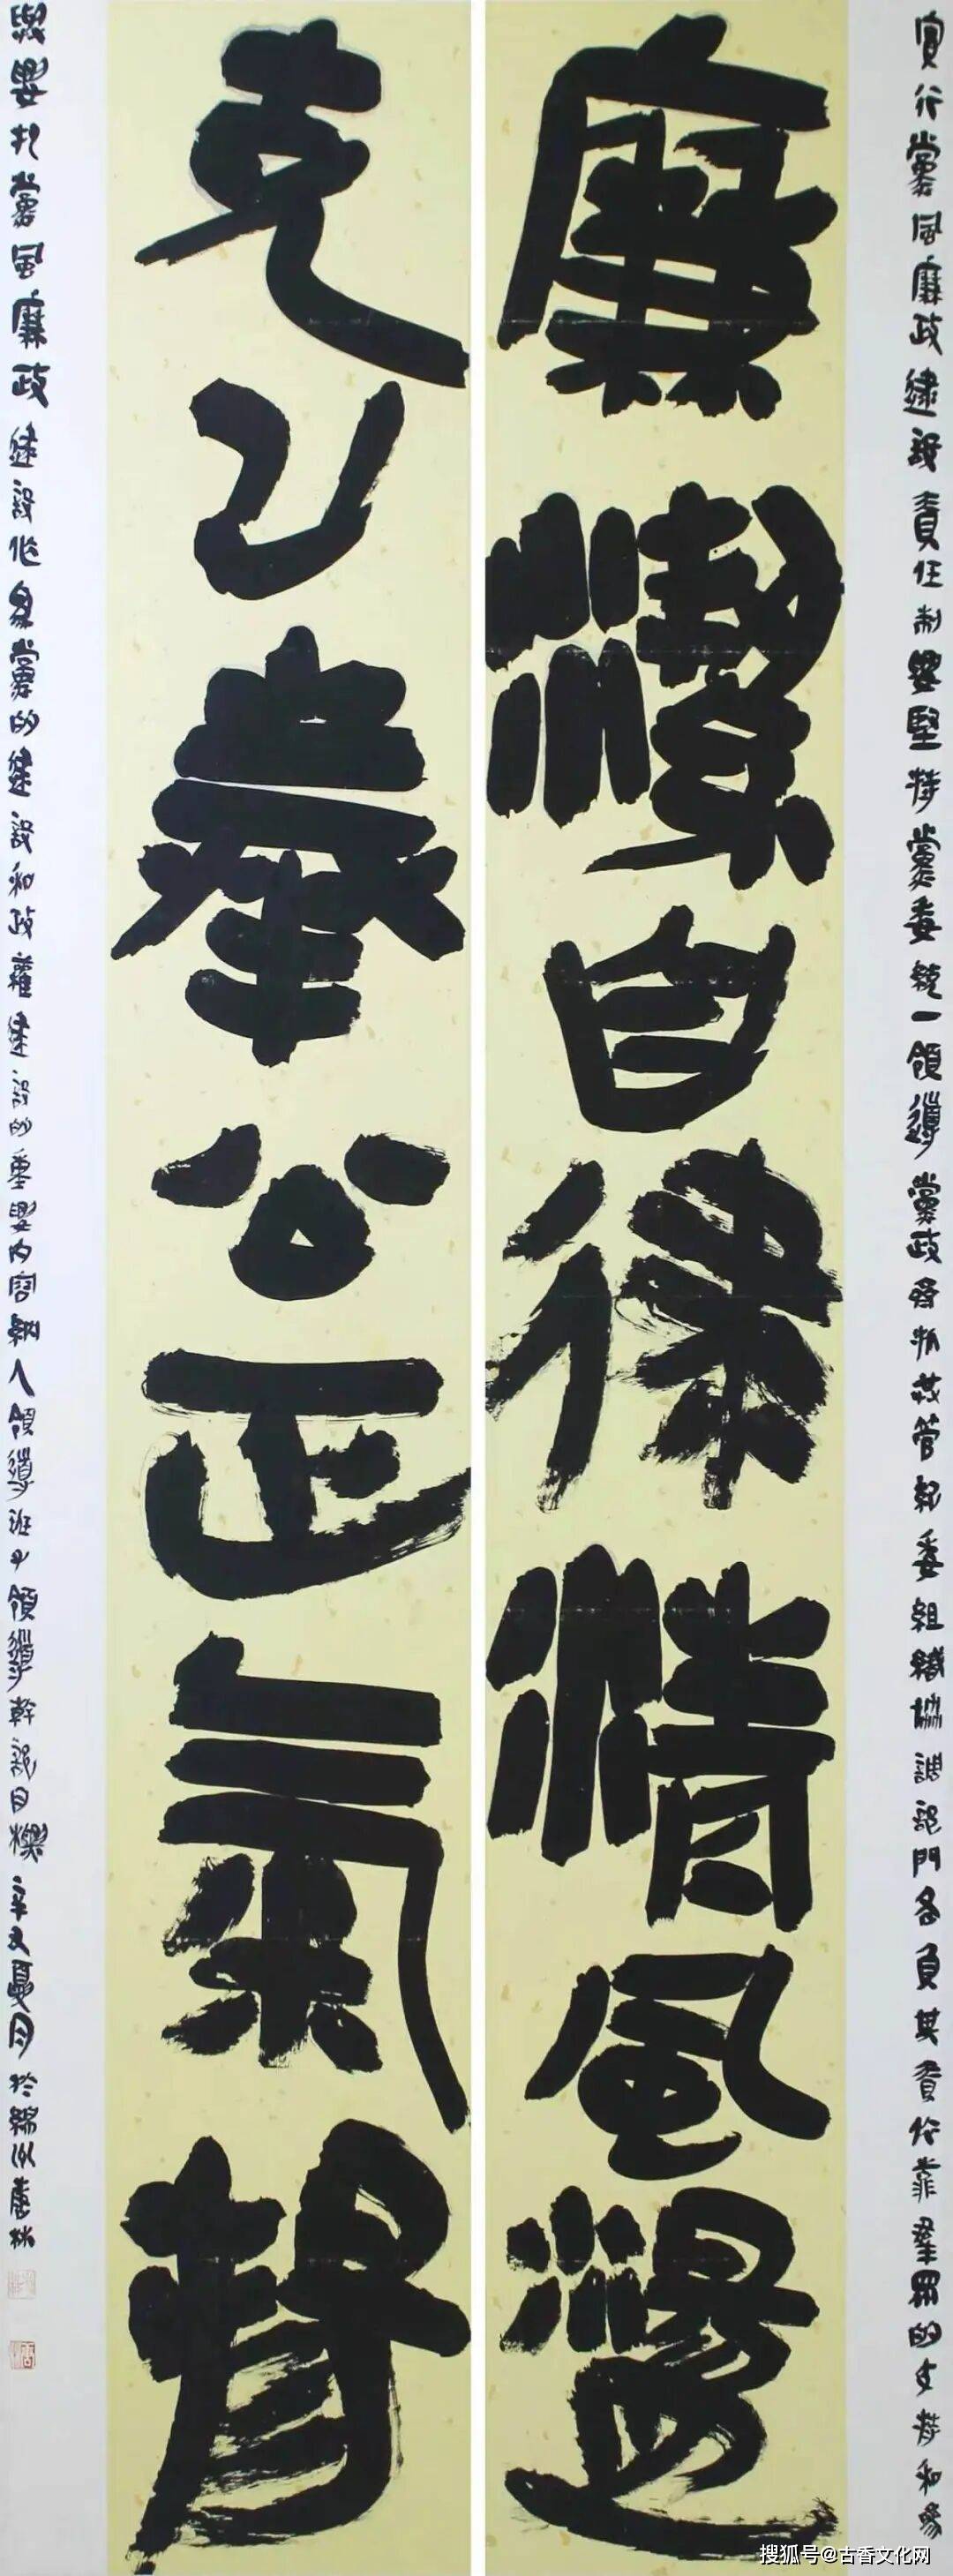 實行黨風廉政建設責任制要堅持黨委統一領導黨政齊抓共管紀委組織協調部門各負其責依靠群眾的支持和參
廉潔自律清風盪
克己奉公正氣
與要把黨風廉政建設作為黨的建設和政權建設的重要內容納入領導班子領導幹部目標辛丑夏月於綿州唐林
搜狐号@古香文化网